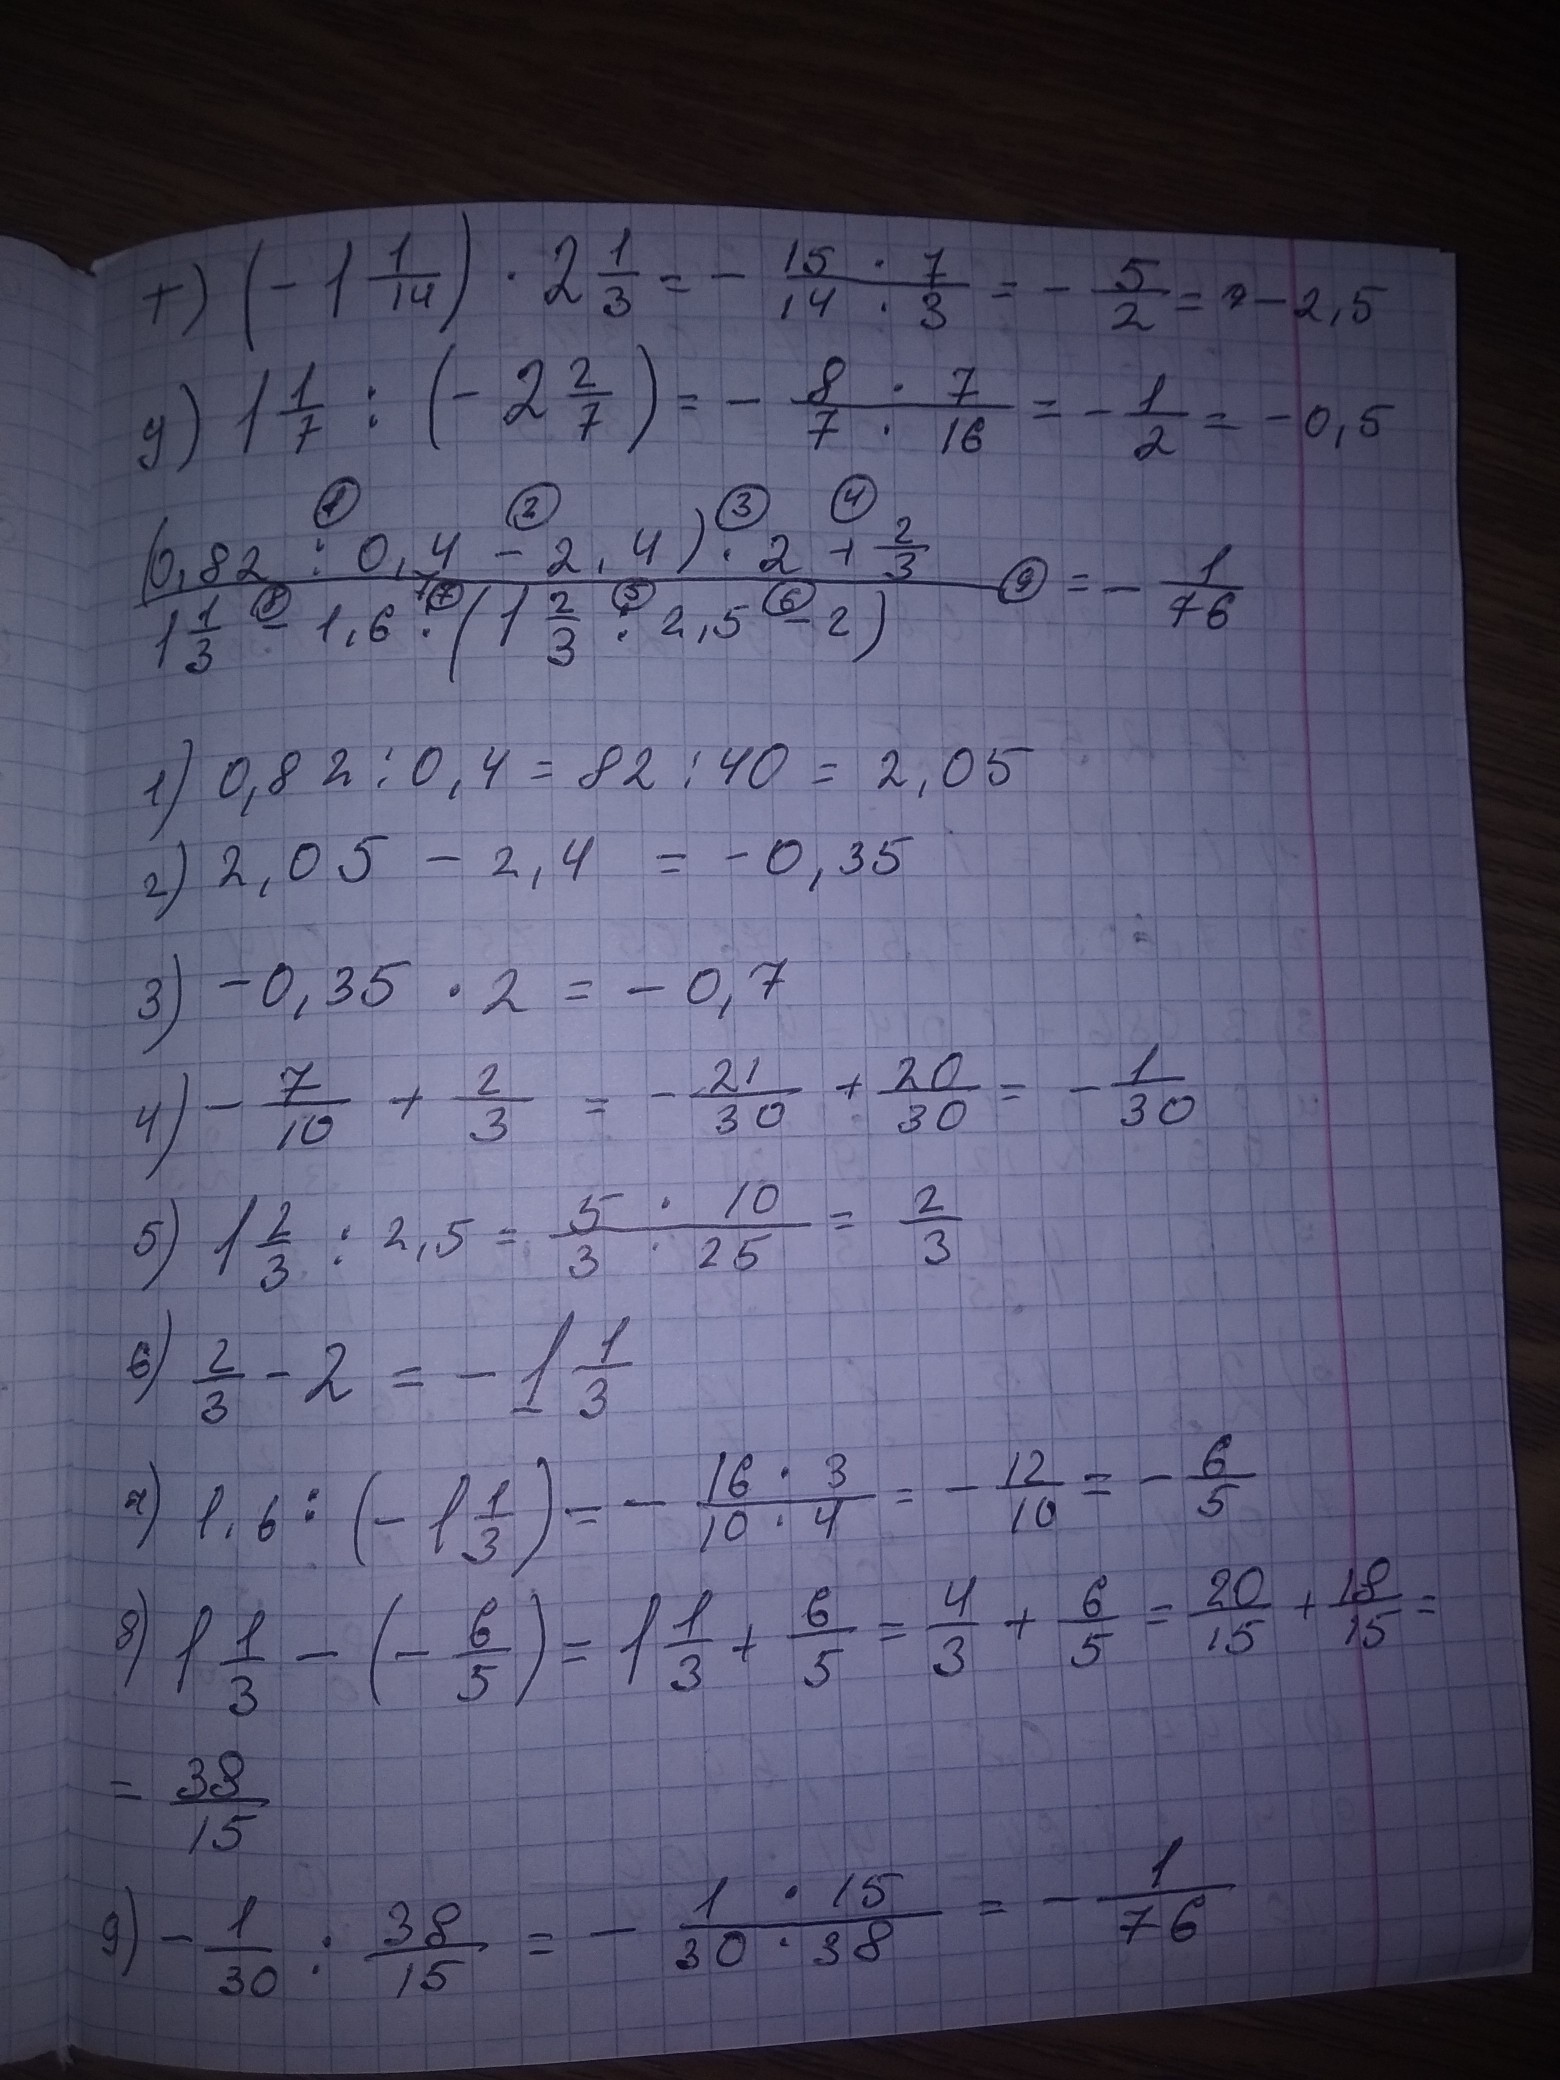 т) (-1 1/14) · 2 1/3 = - (15 · 7)/(14 · 3) = - 5/2 = - 2,5
у) 1 1/7 : (- 2 2/7) = - (8 · 7)/(7 · 16) = - 1/2 = - 0,5
① ② ③ ④
(0,82 : 0,4 - 2,4) · 2 + 2/3
⑨ = - 1/76
⑧ ⑦ ⑤ ⑥
1 1/3 - 1,6 : (1 2/3 : 2,5 - 2)
1) 0,82 : 0,4 = 82 : 40 = 2,05
2) 2,05 - 2,4 = - 0,35
3) - 0,35 · 2 = - 0,7
4) - 7/10 + 2/3 = - 21/30 + 20/30 = - 1/30
5) 1 2/3 : 2,5 = (5 · 10)/(3 · 25) = 2/3
6) 2/3 - 2 = - 1 1/3
7) 1,6 : (- 1 1/3) = - (16 · 3)/(10 · 4) = - 12/10 = - 6/5
8) 1 1/3 - (- 6/5) = 1 1/3 + 6/5 = 4/3 + 6/5 = 20/15 + 18/15 =
= 38/15
9) - 1/30 : 38/15 = - (1 · 15)/(30 · 38) = - 1/76